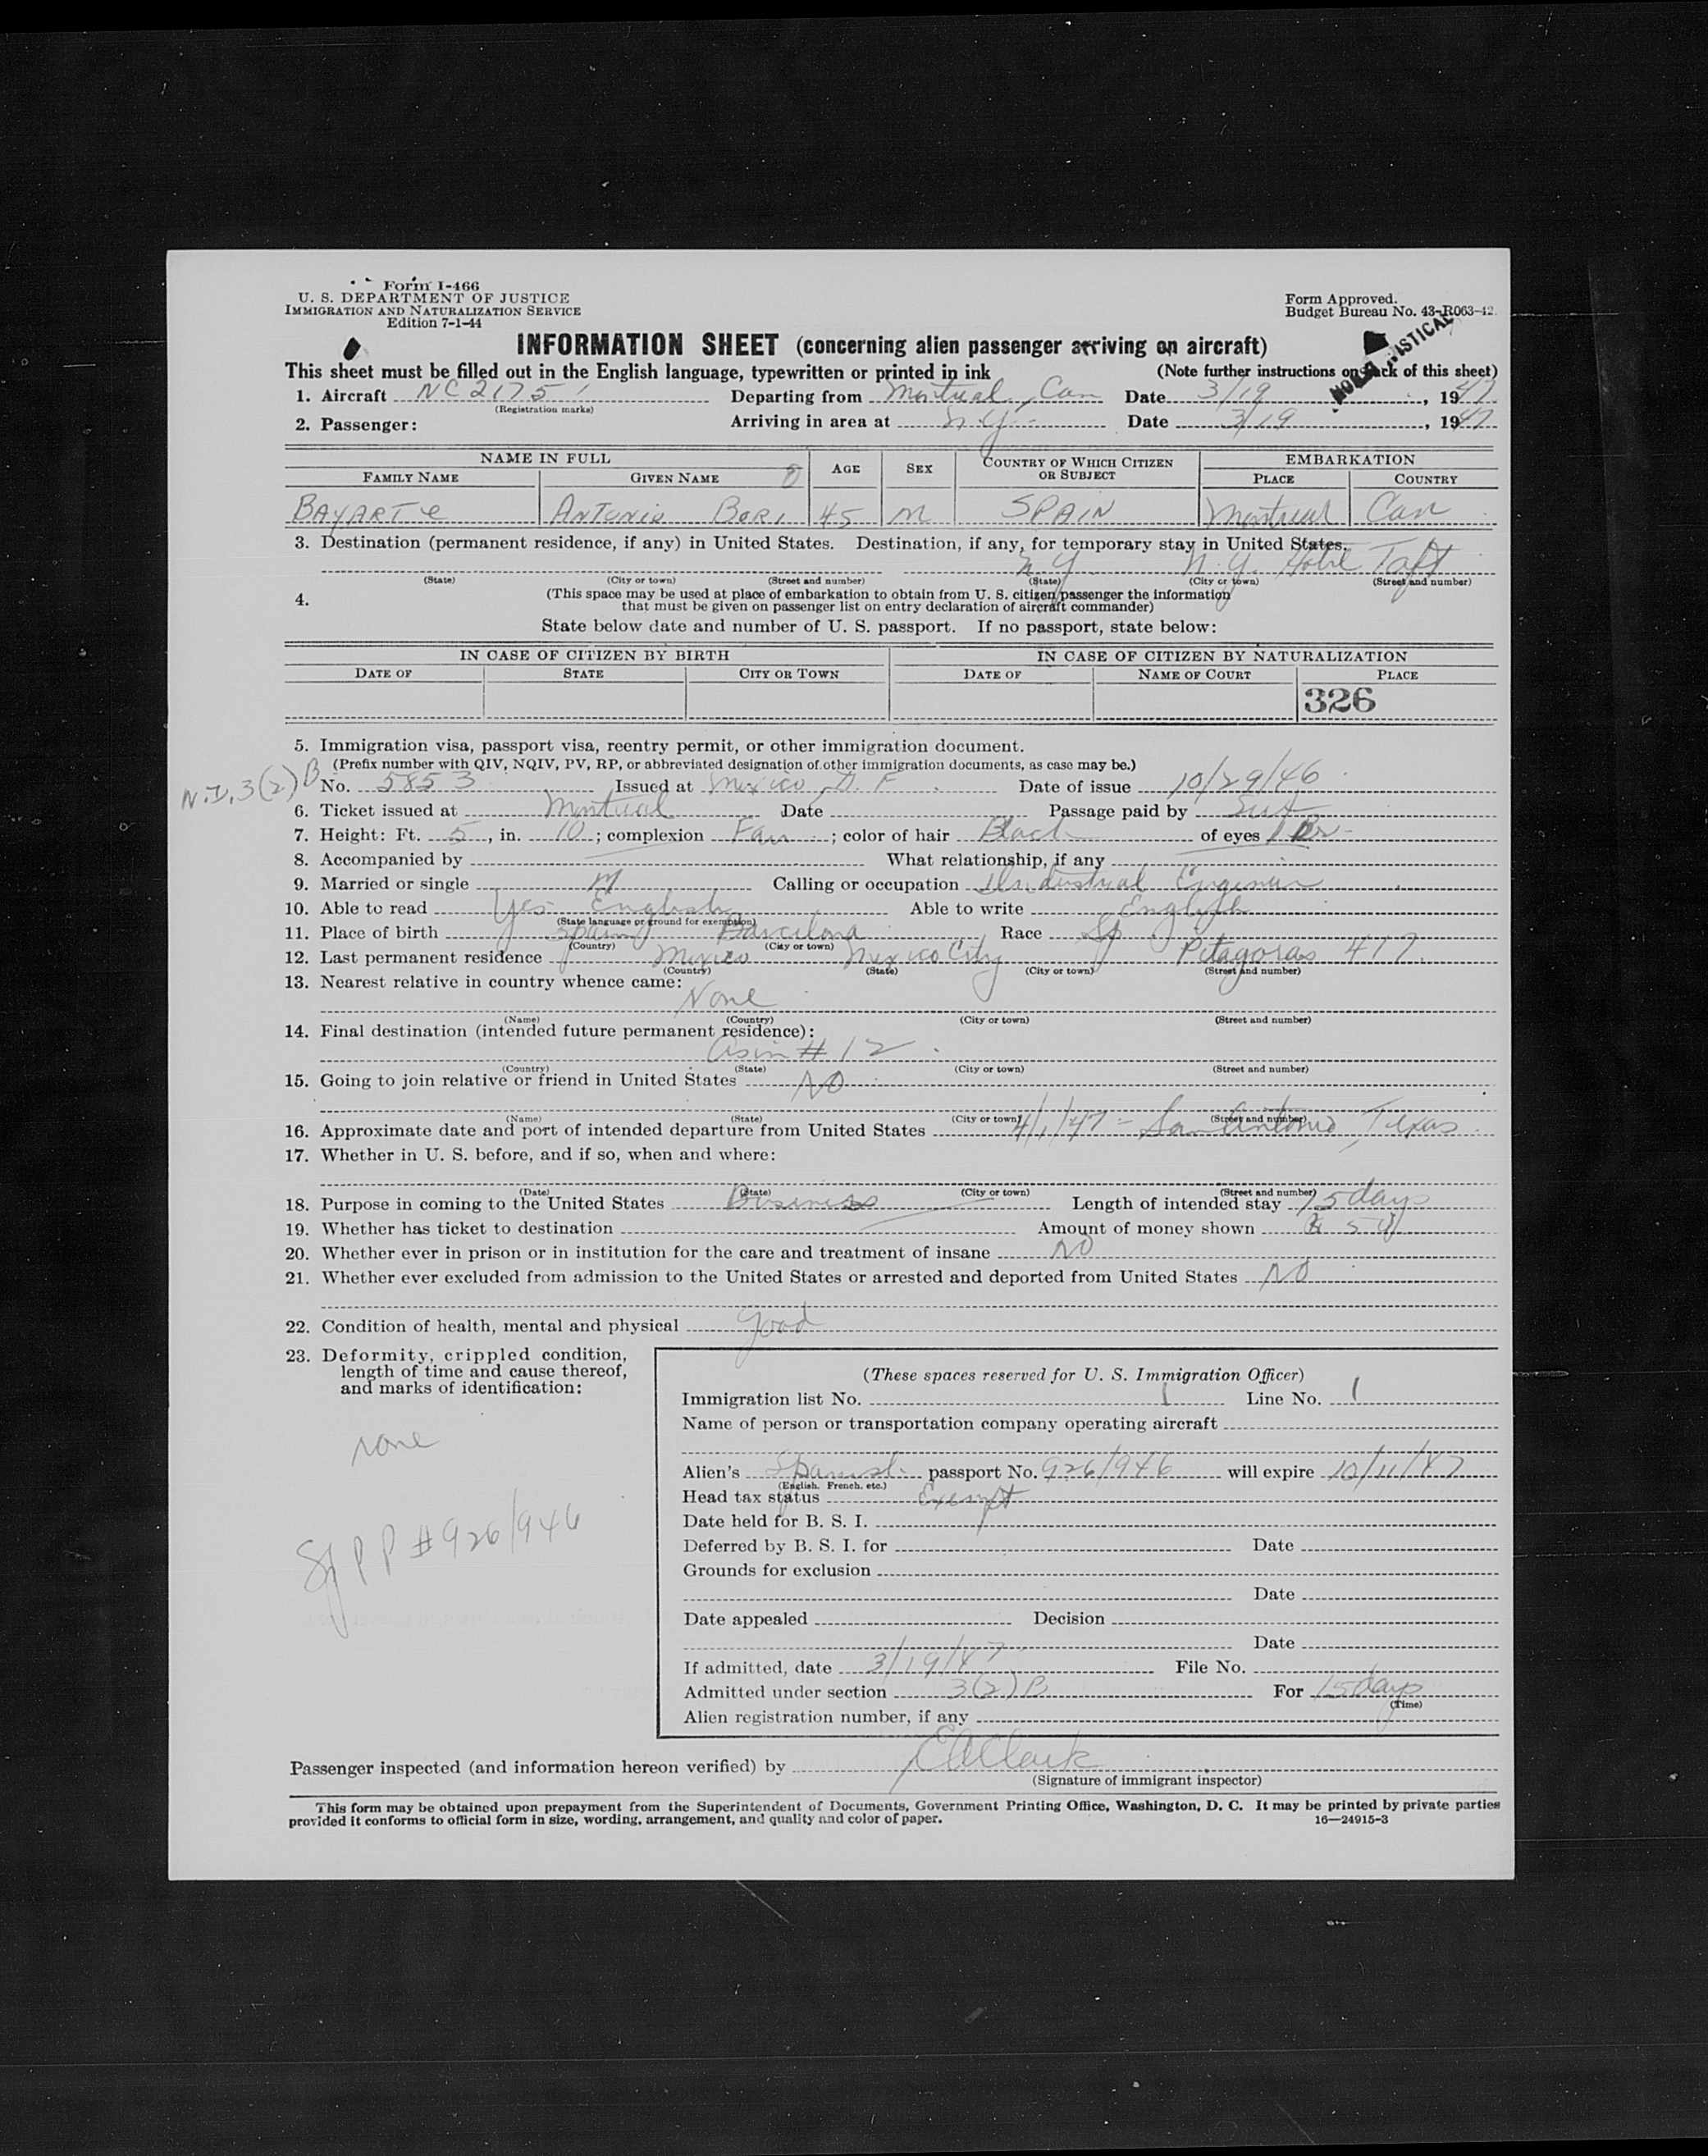 Form I-466
U. S. DEPARTMENT OF JUSTICE
IMMIGRATION AND NATURALIZATION SERVICE
Edition 7-1-44
Form Approved.
Budget Bureau No. 43-R063-42.
INFORMATION SHEET (concerning alien passenger arriving on aircraft)
This sheet must be filled out in the English language, typewritten or printed in ink (Note further instructions on back of this sheet)
1. Aircraft NC 2175 Departing from Montreal, Can Date 3/19, 1947
(Registration marks)
2. Passenger: Arriving in area at N.Y. Date 3/19, 1947
NAME IN FULL AGE SEX COUNTRY OF WHICH CITIZEN OR SUBJECT EMBARKATION
FAMILY NAME GIVEN NAME PLACE COUNTRY
BAYARTE ANTONIO BORI 45 M SPAIN Montreal Can
3. Destination (permanent residence, if any) in United States. Destination, if any, for temporary stay in United States.
N Y N.Y. Hotel Taft
(State) (City or town) (Street and number) (State) (City or town) (Street and number)
4. (This space may be used at place of embarkation to obtain from U. S. citizen passenger the information
that must be given on passenger list on entry declaration of aircraft commander)
State below date and number of U. S. passport. If no passport, state below:
IN CASE OF CITIZEN BY BIRTH IN CASE OF CITIZEN BY NATURALIZATION
DATE OF STATE CITY OR TOWN DATE OF NAME OF COURT PLACE
326
5. Immigration visa, passport visa, reentry permit, or other immigration document.
(Prefix number with QIV, NQIV, PV, RP, or abbreviated designation of other immigration documents, as case may be.)
3(2)B No. 5853 Issued at Mexico D. F. Date of issue 10/29/46
6. Ticket issued at Montreal Date Passage paid by Self
7. Height: Ft. 5, in. 10; complexion Fair; color of hair Black of eyes Br
8. Accompanied by What relationship, if any
9. Married or single M Calling or occupation Industrial Engineer
10. Able to read Yes English Able to write English
(State language or ground for exemption)
11. Place of birth Spain Barcelona Race Sp
(Country) (City or town)
12. Last permanent residence Mexico Mexico City Pitagoras 417
(Country) (State) (City or town) (Street and number)
13. Nearest relative in country whence came:
None
(Name) (Country) (City or town) (Street and number)
14. Final destination (intended future permanent residence):
as in # 12
(Country) (State) (City or town) (Street and number)
15. Going to join relative or friend in United States NO
(Name) (State) (City or town) (Street and number)
16. Approximate date and port of intended departure from United States 4/1/47 - San Antonio, Texas
17. Whether in U. S. before, and if so, when and where:
(Date) (State) (City or town) (Street and number)
18. Purpose in coming to the United States Business Length of intended stay 15 days
19. Whether has ticket to destination Amount of money shown
20. Whether ever in prison or in institution for the care and treatment of insane NO
21. Whether ever excluded from admission to the United States or arrested and deported from United States NO
22. Condition of health, mental and physical good
23. Deformity, crippled condition,
length of time and cause thereof,
and marks of identification:
none
Sp PP # 926/946
(These spaces reserved for U. S. Immigration Officer)
Immigration list No. 1 Line No. 1
Name of person or transportation company operating aircraft
Alien's Spanish passport No. 926/946 will expire 10/11/47
(English, French, etc.)
Head tax status Exempt
Date held for B. S. I.
Deferred by B. S. I. for Date
Grounds for exclusion
Date
Date appealed Decision
Date
If admitted, date 3/19/47 File No.
Admitted under section 3(2)B For 15 days
(Time)
Alien registration number, if any
Passenger inspected (and information hereon verified) by E A Clark
(Signature of immigrant inspector)
This form may be obtained upon prepayment from the Superintendent of Documents, Government Printing Office, Washington, D. C. It may be printed by private parties
provided it conforms to official form in size, wording, arrangement, and quality and color of paper. 16—24915-3